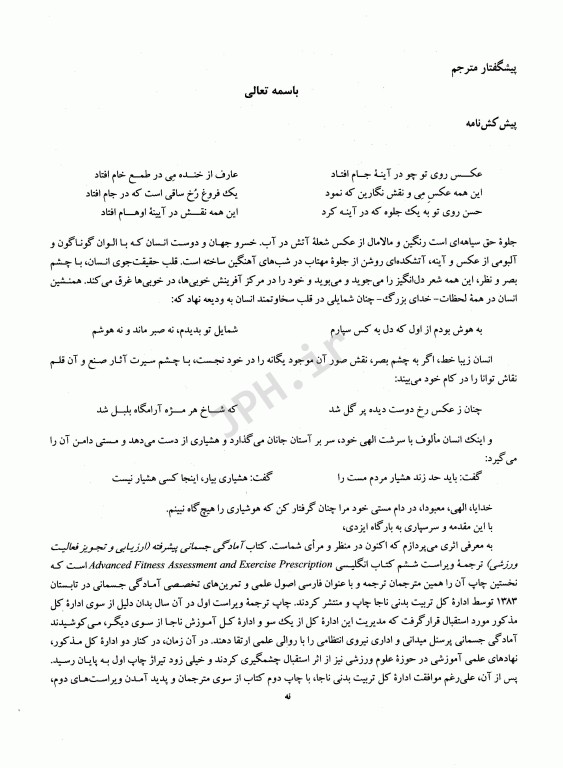 پیشگفتار مترجم
باسمه تعالی
پیش‌کش‌نامه
عکس روی تو چو در آینهٔ جام افتاد	عارف از خنده مِی در طمع خام افتاد
این همه عکسِ مِی و نقش نگارین که نمود	یک فروغ رُخ ساقی است که در جام افتاد
حسن روی تو به یک جلوه که در آینه کرد	این همه نقش در آیینهٔ اوهام افتاد
جلوهٔ حق سیاهه‌ای است رنگین و مالامال از عکس شعلهٔ آتش در آب. خسرو جهان و دوست انسان که با الوان گوناگون و
آلبومی از عکس و آینه، آتشکده‌ای روشن از جلوهٔ مهتاب در شب‌های آهنگین ساخته است. قلب حقیقت‌جوی انسان، با چشم
بصر و نظر، این همه شعر دل‌انگیز را می‌جوید و می‌بوید و خود را در مرکز آفرینش خوبی‌ها، در خوبی‌ها غرق می‌کند. همنشین
انسان در همهٔ لحظات- خدای بزرگ- چنان شمایلی در قلب سخاوتمند انسان به ودیعه نهاد که:
به هوش بودم از اول که دل به کس سپارم	شمایل تو بدیدم، نه صبر ماند و نه هوشم
انسان زیبا خط، اگر به چشم بصر، نقش صور آن موجود یگانه را در خود نجست، با چشم سیرت آثار صنع و آن قلم
نقاش توانا را در کام خود می‌بیند:
چنان ز عکس رخ دوست دیده پر گل شد	که شاخ هر مژه آرامگاه بلبل شد
و اینک انسان مألوف با سرشت الهی خود، سر بر آستان جانان می‌گذارد و هشیاری از دست می‌دهد و مستی دامن آن را
می‌گیرد:
گفت: باید حد زند هشیار مردم مست را	گفت: هشیاری بیار، اینجا کسی هشیار نیست
خدایا، الهی، معبودا، در دام مستی خود مرا چنان گرفتار کن که هوشیاری را هیچ‌گاه نبینم.
با این مقدمه و سرسپاری به بارگاه ایزدی،
به معرفی اثری می‌پردازم که اکنون در منظر و مرأی شماست. کتاب آمادگی جسمانی پیشرفته (ارزیابی و تجویز فعالیت
ورزشی) ترجمهٔ ویراست ششم کتاب انگلیسی Advanced Fitness Assessment and Exercise Prescription است که
نخستین چاپ آن را همین مترجمان ترجمه و با عنوان فارسی اصول علمی و تمرین‌های تخصصی آمادگی جسمانی در تابستان
۱۳۸۳ توسط ادارهٔ کل تربیت بدنی ناجا چاپ و منتشر کردند. چاپ ترجمهٔ ویراست اول در آن سال بدان دلیل از سوی ادارهٔ کل
مذکور مورد استقبال قرار گرفت که مدیریت این ادارهٔ کل از یک سو و ادارهٔ کل آموزش ناجا از سوی دیگر، می‌کوشیدند
آمادگی جسمانی پرسنل میدانی و اداری نیروی انتظامی را با روالی علمی ارتقا دهند. در آن زمان، در کنار دو ادارهٔ کل مذکور،
نهادهای علمی آموزشی در حوزهٔ علوم ورزشی نیز از اثر استقبال چشمگیری کردند و خیلی زود تیراژ چاپ اول به پایان رسید.
پس از آن، علی‌رغم موافقت ادارهٔ کل تربیت بدنی ناجا، با چاپ دوم کتاب از سوی مترجمان و پدید آمدن ویراست‌های دوم،
نه
JPH.ir